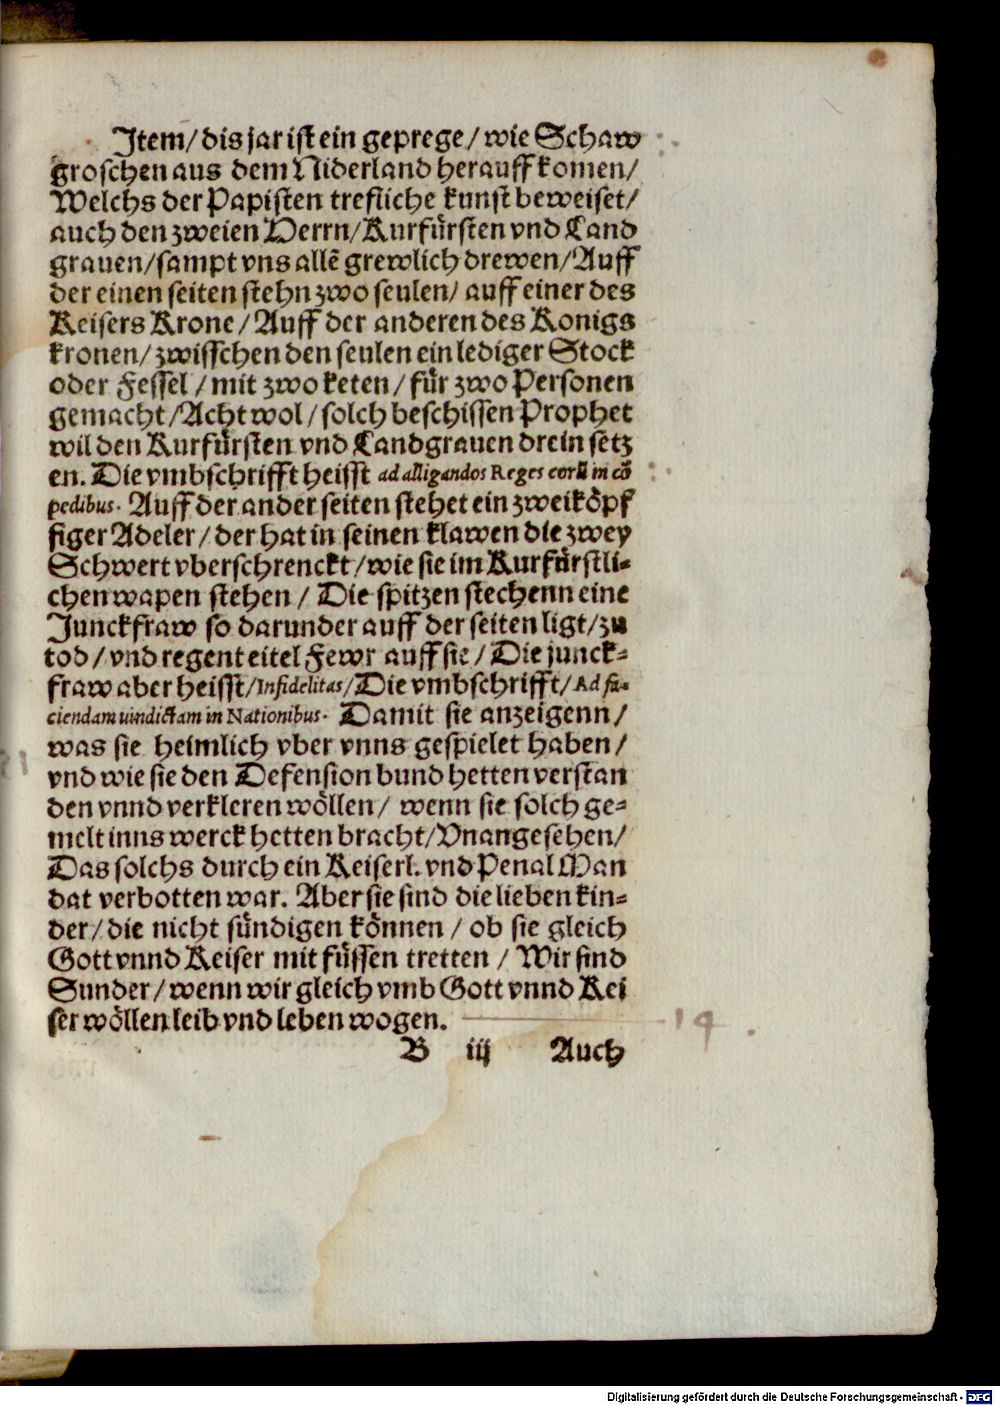 Jtem/ dis jar ist ein geprege/ wie Schaw
groschen aus dem Niderland herauff komen/
Welchs der Papisten trefliche kunst beweiset/
auch den zweien Herrn/ Kurfürsten vnd Land
grauen/ sampt vns allē grewlich drewen/ Auff
der einen seiten stehn zwo seulen/ auff einer des
Keisers Krone/ Auff der anderen des Konigs
kronen/ zwisschen den seulen ein lediger Stock
oder Fessel/ mit zwo keten/ für zwo Personen
gemacht/ Acht wol/ solch beschissen Prophet
wil den Kurfürsten vnd Landgrauen drein setz
en. Die vmbschrifft heisst ad alligandos Reges eorū in cō
pedibus. Auff der ander seiten stehet ein zweiköpf
figer Adeler/ der hat in seinen klawen die zwey
Schwert vberschrenckt/ wie sie im Kurfürstli-
chen wapen stehen/ Die spitzen stechenn eine
Junckfraw so darunder auff der seiten ligt/ zu
tod/ vnd regent eitel Fewr auff sie/ Die junck-
fraw aber heisst/ Infidelitas/ Die vmbschrifft/ Ad fa-
ciendam uindictam in Nationibus. Damit sie anzeigenn/
was sie heimlich vber vnns gespielet haben/
vnd wie sie den Defension bund hetten verstan
den vnnd verkleren wöllen/ wenn sie solch ge-
melt inns werck hetten bracht/ Vnangesehen/
Das solchs durch ein Keiserl. vnd Penal Man
dat verbotten war. Aber sie sind die lieben kin-
der/ die nicht sündigen können/ ob sie gleich
Gott vnnd Keiser mit füssen tretten/ Wir sind
Sunder/ wenn wir gleich vmb Gott vnnd Kei
ser wöllen leib vnd leben wogen.
14.
B iij Auch
Digitalisierung gefördert durch die Deutsche Forschungsgemeinschaft - DFG